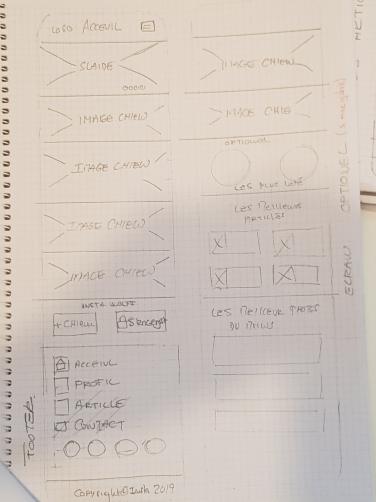 LOGO ACCEUIL
SLAIDE
IMAGE CHIEN
IMAGE CHIEN
IMAGE CHIEN
IMAGE CHIEN
INSTA WOLFE
+ CHIEN
ACCEIUL
PROFIL
ARTICLE
CONTACT
FOOTER
Copyright
2019
IMAGE CHIEN
IMAGE CHIE
OPTIONEL
LES PLUS
LES MEILLEURS
ARTICLES
LES MEILLEUR
DU
ECRAN OPTIONEL